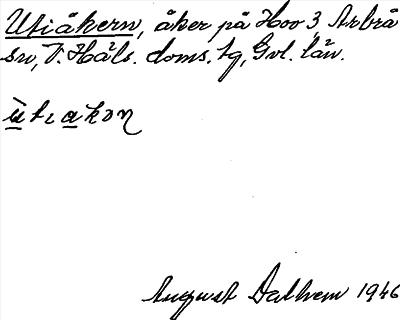 Utiåkern, åker på Hoo 3, Arbrå
sn, V. Häls. doms. tg, Gvl. län.
ùtɩakon
August Dalhem 1946